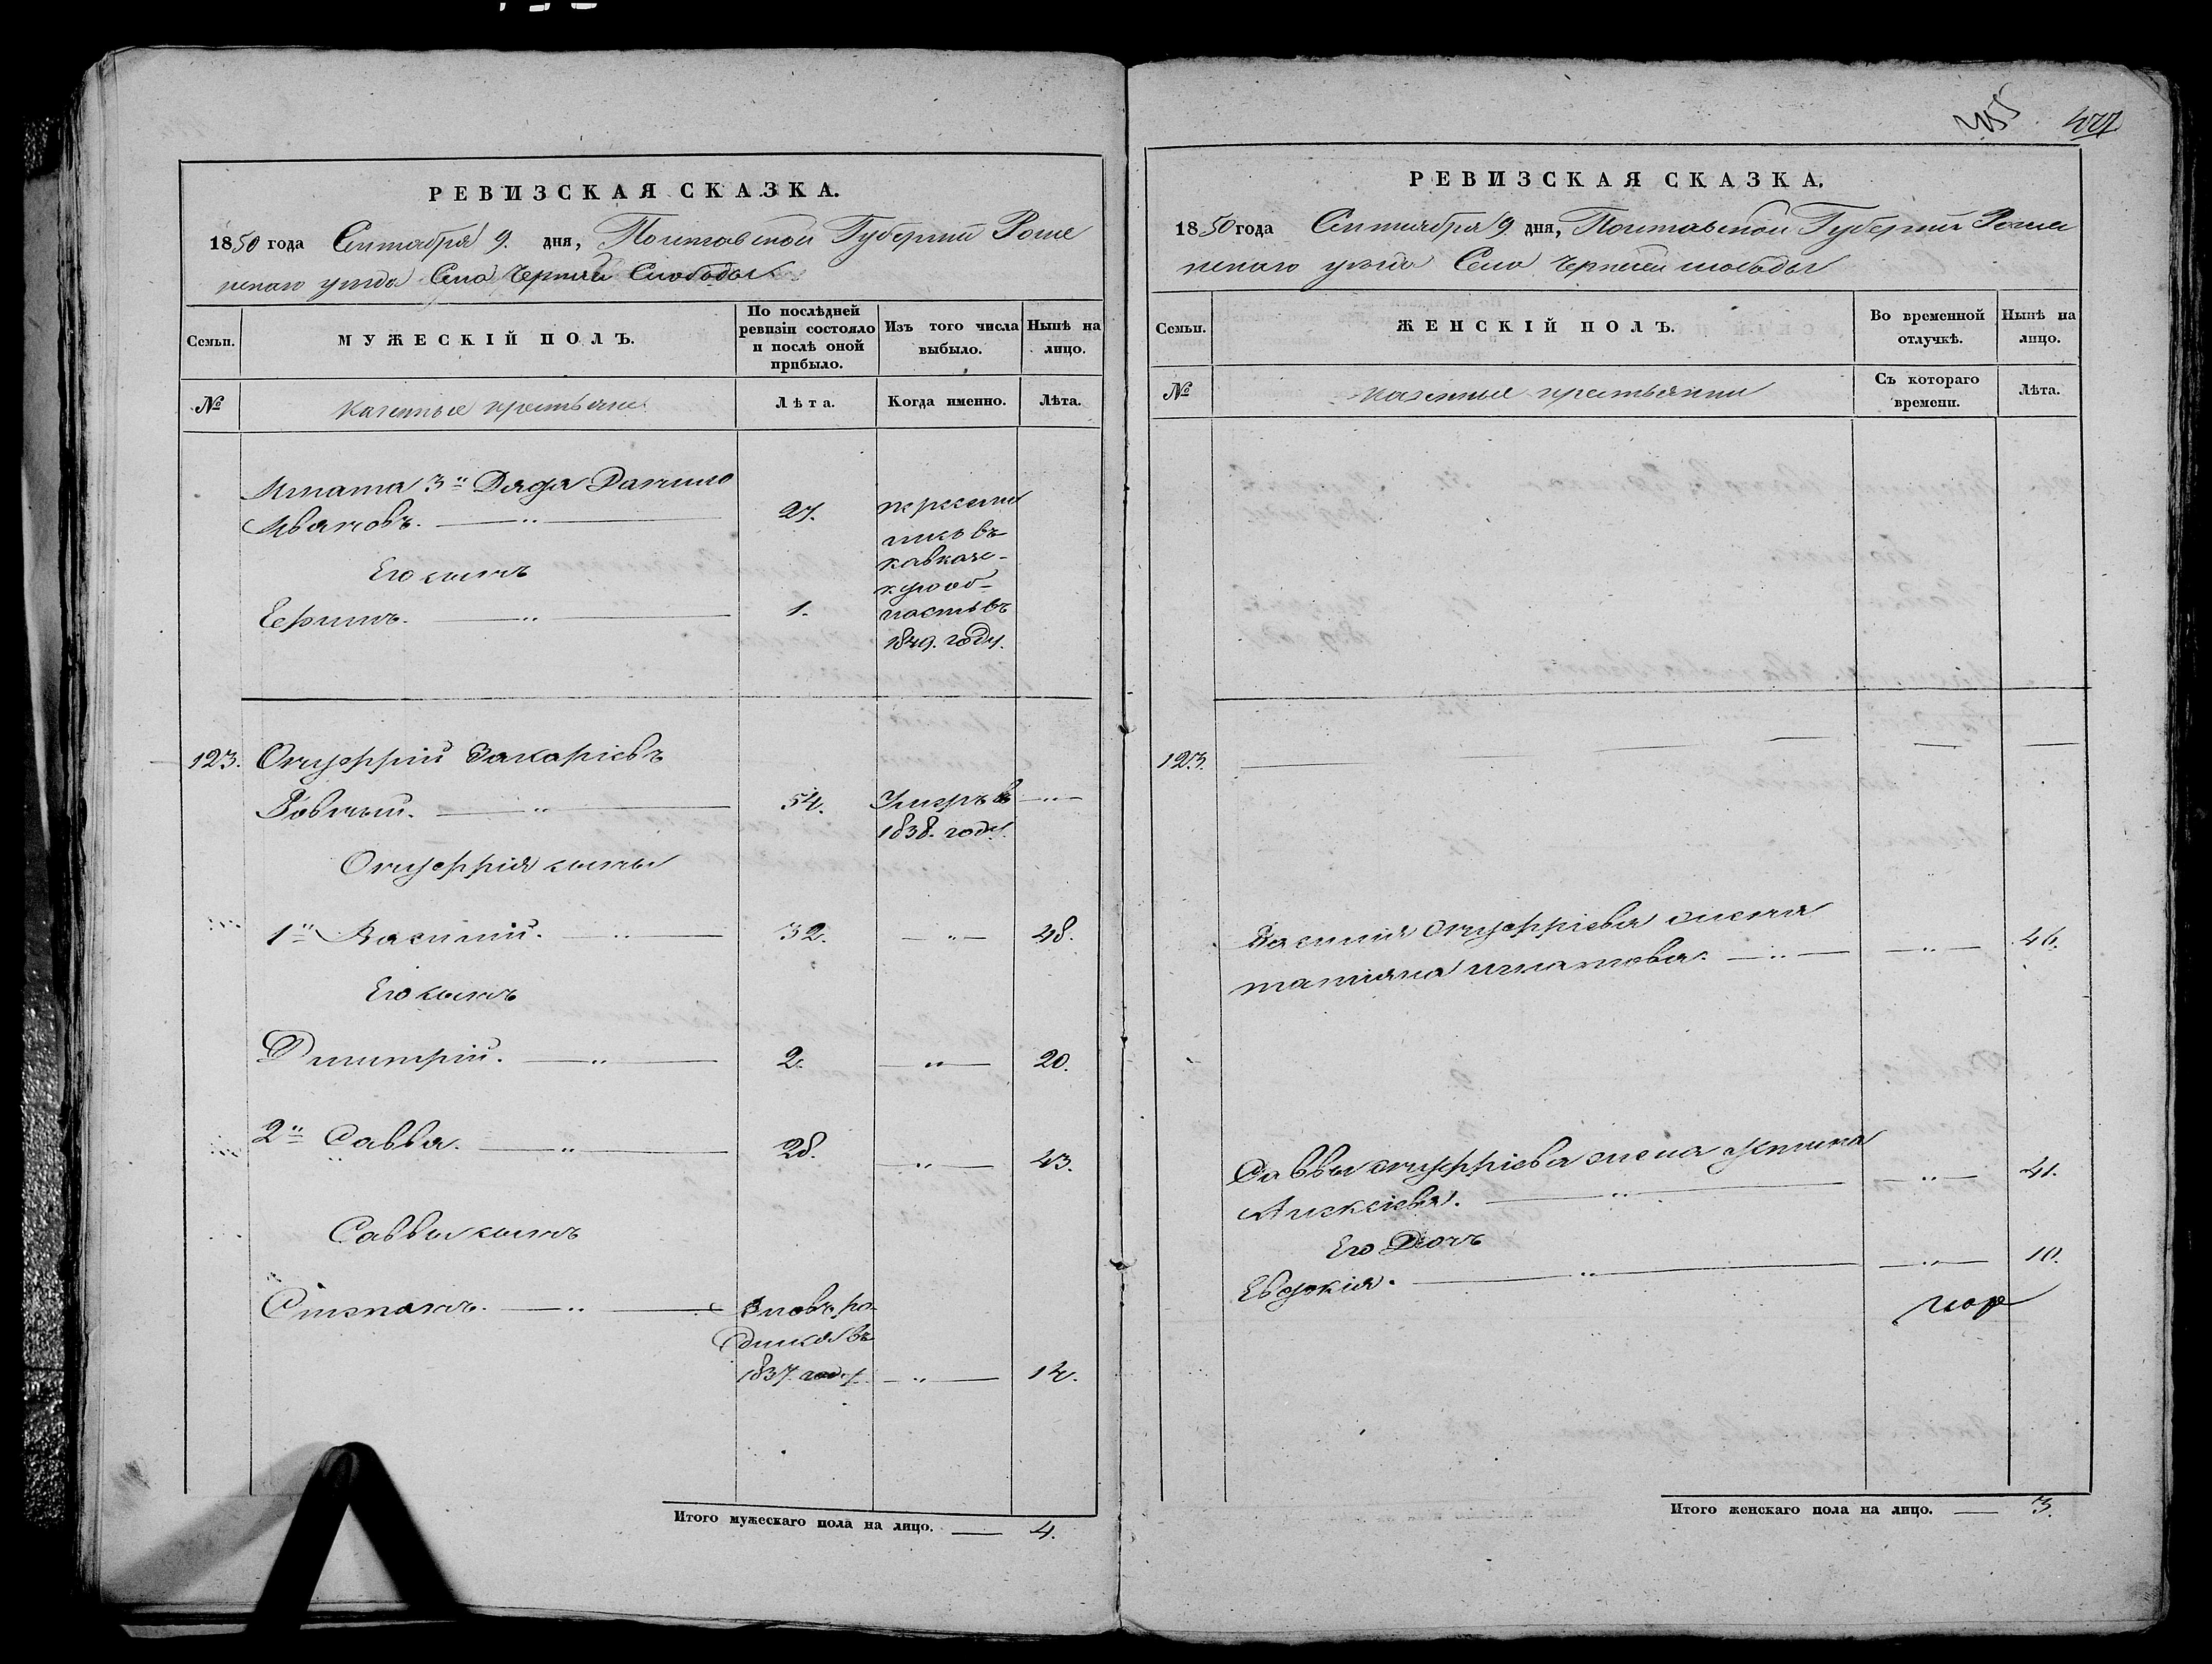 РЕВИЗСКАЯ СКАЗКА.
1850 года Сентября 9. дня, Полтавской Губернии Роме
нскаго уезда Села Чернечей Слободы
Семьи.
МУЖЕСКІЙ ПОЛЪ.
По послѣдней ревизіи состояло и послѣ оной прибыло.
Изъ того числа выбыло.
Нынѣ на лицо.
№
казенные крестьяне
Лѣта.
Когда именно.
Лѣта.
Игната 3й Дядя Данило
Ивановъ.
27.
пересели
лись въ
кавказс-
кую об-
ласть въ
1849. году.
Его сынъ
Ефимъ.
1.
123.
Онуфрій Захаріевъ
54.
Умеръ въ
1838. году.
Онуфрія сыны
1й Василій.
32.
48.
Его сынъ
Дмитрій.
2.
20.
2й Савва.
28.
43.
Саввы сынъ
Степанъ.
вновь ро-
дился въ
1837. году.
14.
Итого мужескаго пола на лицо. 4.
427
РЕВИЗСКАЯ СКАЗКА.
1850 года Сентября 9 дня, Полтавской Губернии Роме
нскаго уезда Села Чернечей слободы
Семьи.
ЖЕНСКІЙ ПОЛЪ.
Во временной отлучкѣ.
Нынѣ на лицо.
№
казенные крестьянки
Съ котораго времени.
Лѣта.
123.
Василия Онуфріева жена
татіяна игнатова.
46.
Саввы онуфріева жена устина
Алексіева.
41.
Его Дочь
Евдокія.
10.
Итого женскаго пола на лицо. 3.